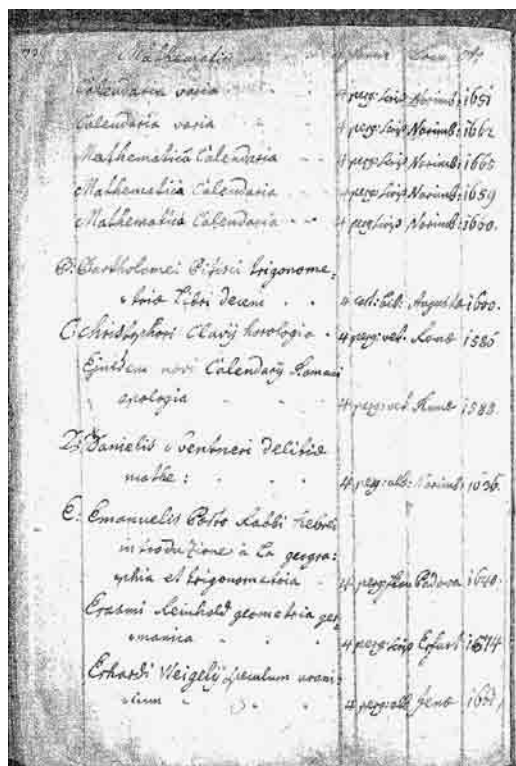 Mathematici 4 Forma Locus Ao
Calendaria varia 4 perg: script Norimb: 1651
Calendaria varia 4 perg: script Norimb: 1662
Mathematica Calendaria 4 perg: script Norimb: 1665
Mathematica Calendaria 4 perg: script Norimb: 1659
Mathematica Calendaria 4 perg: script Norimb: 1660.
B: Bartholomei Pitisci trigonome=
tria Libri decem 4 Augusta 1600.
C: Christophori Clavij horologia 4 perg: vet. Roma 1586
Ejusdem novi Calendarij Romani
apologia 4 perg: vet. Roma 1588.
D: Danielis Sventneri delitiæ
mathe: 4 perg: alb: Norimb: 1636.
E: Emanuelis Porto Rabbi hebrei
introduzione à la geogra:
phia et trigonometria 4 perg: Padova 1640.
Erasmi Reinhold geometria ger,
manica 4 perg: script Erfurt 1574
Erhardi Weigelij speculum urani,
cum 4 perg: alb Jena 1661